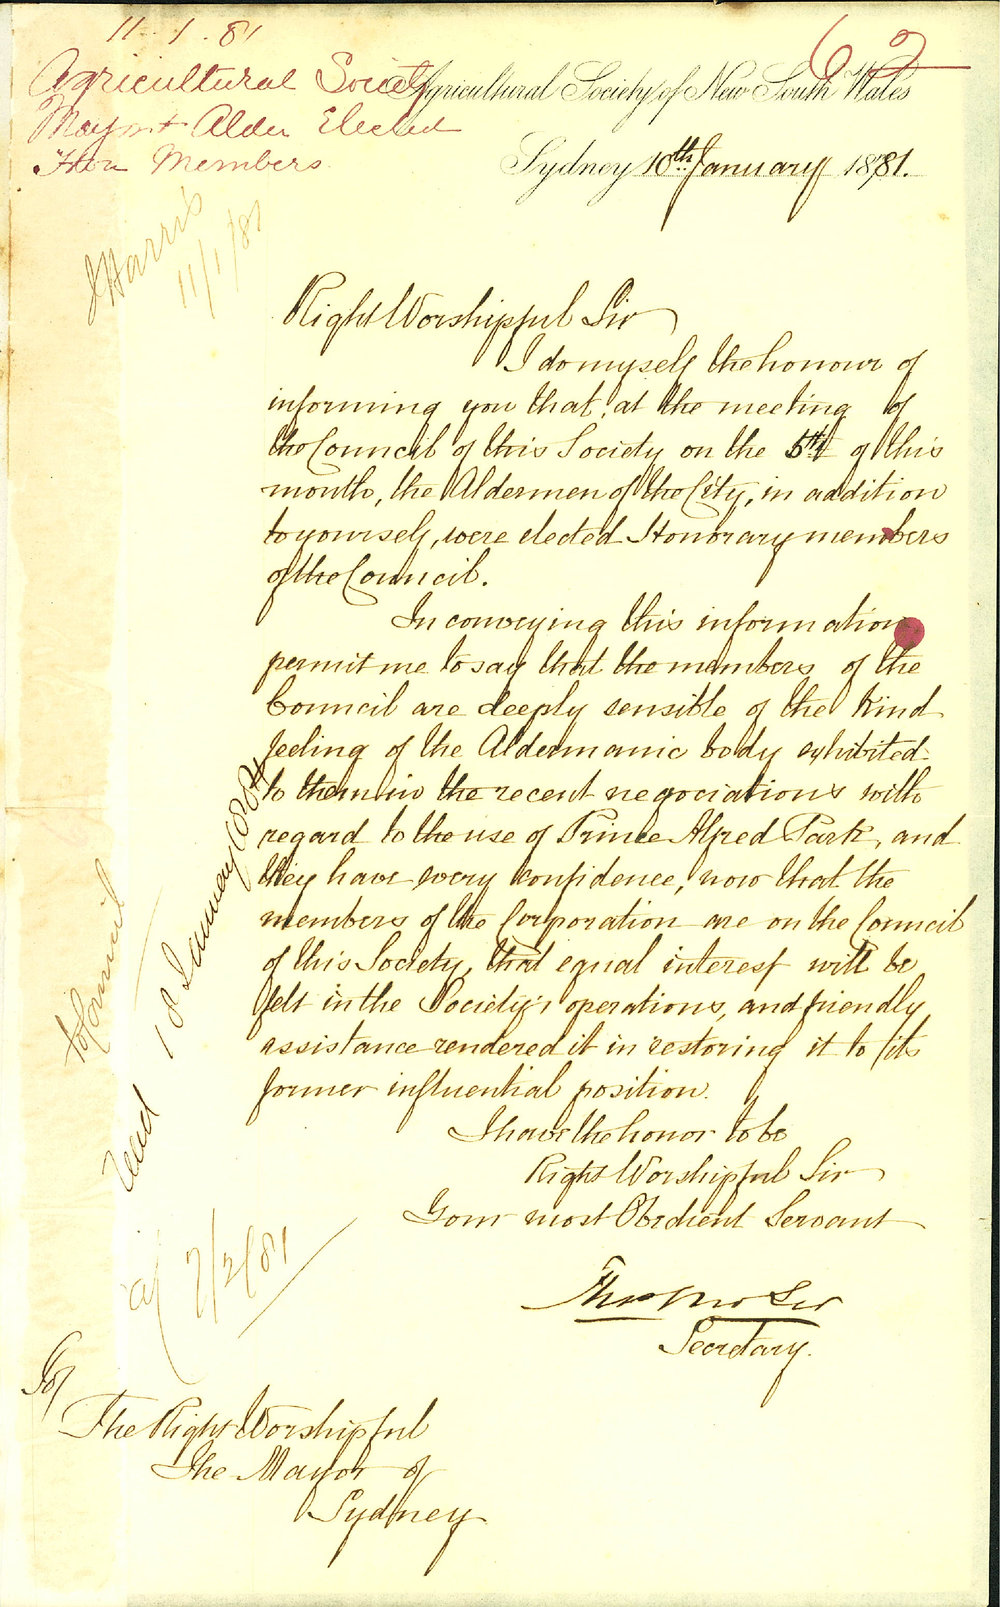 11.1.81
62
Agricultural Society
Mayor + Alder Elected
Hon Members
Agricultural Society of New South Wales
Sydney 10th January 1881.
J Harris
11/1/81
Right Worshipful Sir
I do myself the honour of
informing you that, at the meeting of
the Council of this Society on the 5th of this
month, the Aldermen of the City, in addition
to yourself, were elected Honorary members
of the Council.
In conveying this information
permit me to say that the members of the
Council are deeply sensible of the kind
feeling of the Aldermanic body exhibited
to them in the recent negociations with
regard to the use of Prince Alfred Park, and
they have every confidence, now that the
members of the Corporation are on the Council
of this Society, that equal interest will be
felt in the Society's operations, and friendly
assistance rendered it in restoring it to its
former influential position.
I have the honor to be
Right Worshipful Sir
Your most Obedient Servant
Secretary.
to Council
read 18 January
7/2/81
The Right Worshipful
The Mayor of
Sydney